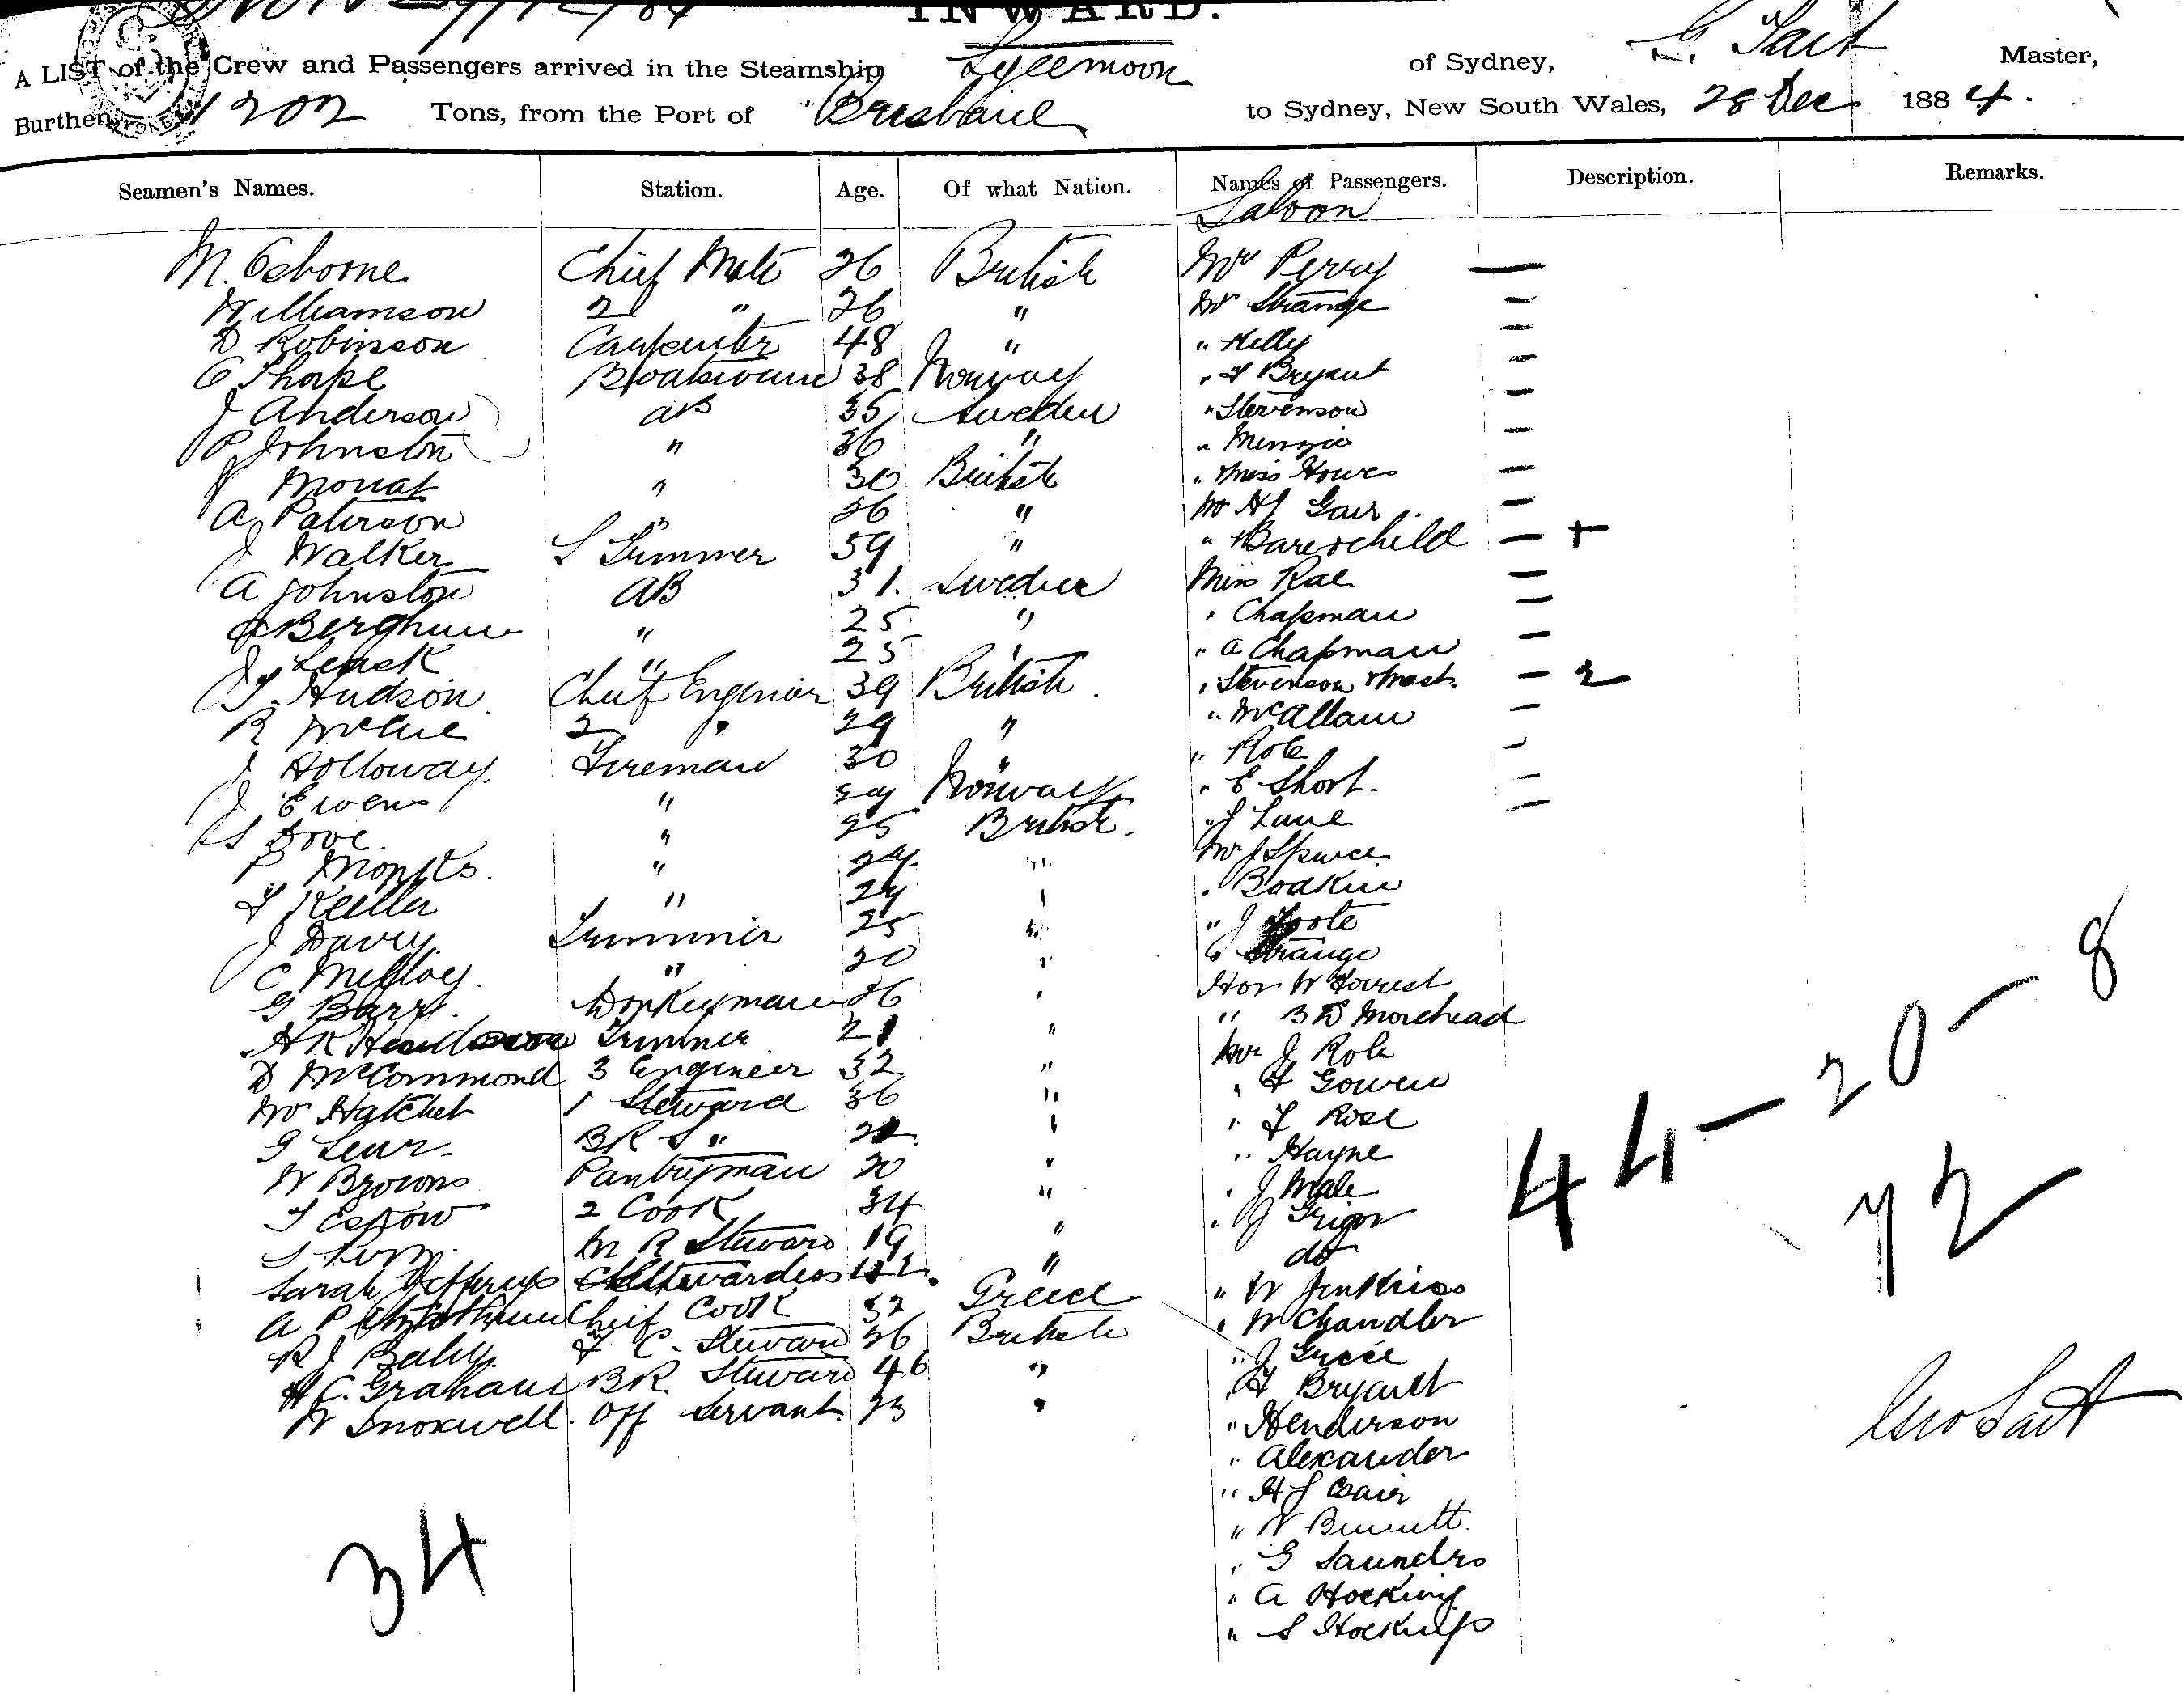 INWARD.
A LIST of the Crew and Passengers arrived in the Steamship Lyeemoon of Sydney, Master,
Burthen 1202 Tons, from the Port of Brisbane to Sydney, New South Wales, 28 Dec 1884.
Seamen's Names. Station. Age. Of what Nation. Names of Passengers. Description. Remarks.
Saloon
M. Osborne Chief Mate 26 British Mrs Perry —
Williamson 2 " 26 " Mr Strange —
D Robinson Carpenter 48 " " Kelly —
C Thorpe Boatswain 38 Norway " F Bryant —
J Anderson AB 35 Sweden " Stevenson —
P Johnston " 36 " " Menzie —
J Mouat " 30 British " Miss Howes —
A Paterson " 26 " Mr HJ Gair —
J Walker S Trimmer 59 " " Bare & child — +
A Johnston AB 31. Sweden Miss Rae —
Berghun " 25 " " Chapman —
J Leask " 25 " " A Chapman —
T Hudson Chief Engineer 39 British " Stevenson & Mast. — 2
R McCue 2 " 29 " " McAllan —
J Holloway Fireman 30 " " Role —
J Ewens " 29 Norway " E Short. —
S Dove " 25 British. " J Lane —
P Monks. " 24 " Mr J Spence
F Keiller " 24 " " Bodkin
J Davey Trimmer 25 " " J Foote
C Melloy. " 20 " " Strange
G Barry. Donkeyman 26 " Hon W Forrest
A K Henderson Trimmer 21 " " B D Morehead
D McCommond 3 Engineer 32 " Mr J Role
W Hatchet 1 Steward 36 " " F Gowen
G Lear BR S " " " F Rose
W Browns Pantryman 20 " " Hayne
T Eskow 2 Cook 34 " " J Male
S M R Steward 19 " " J Grigor
do
Sarah Jefferys Stewardess 42. " " W Jenkins
A P Chief Cook 32 Greece " W Chandler
R J Baley F C. Steward 26 British " J Grice
H C. Graham BR. Steward 46 " " F Bryant
W Snoxwell Off Servant 23 " " Henderson
" Alexander
" H J Gair
" W Bennett.
" G Saunders
" A Hocking
" S Hockings
44—20—8
72
34